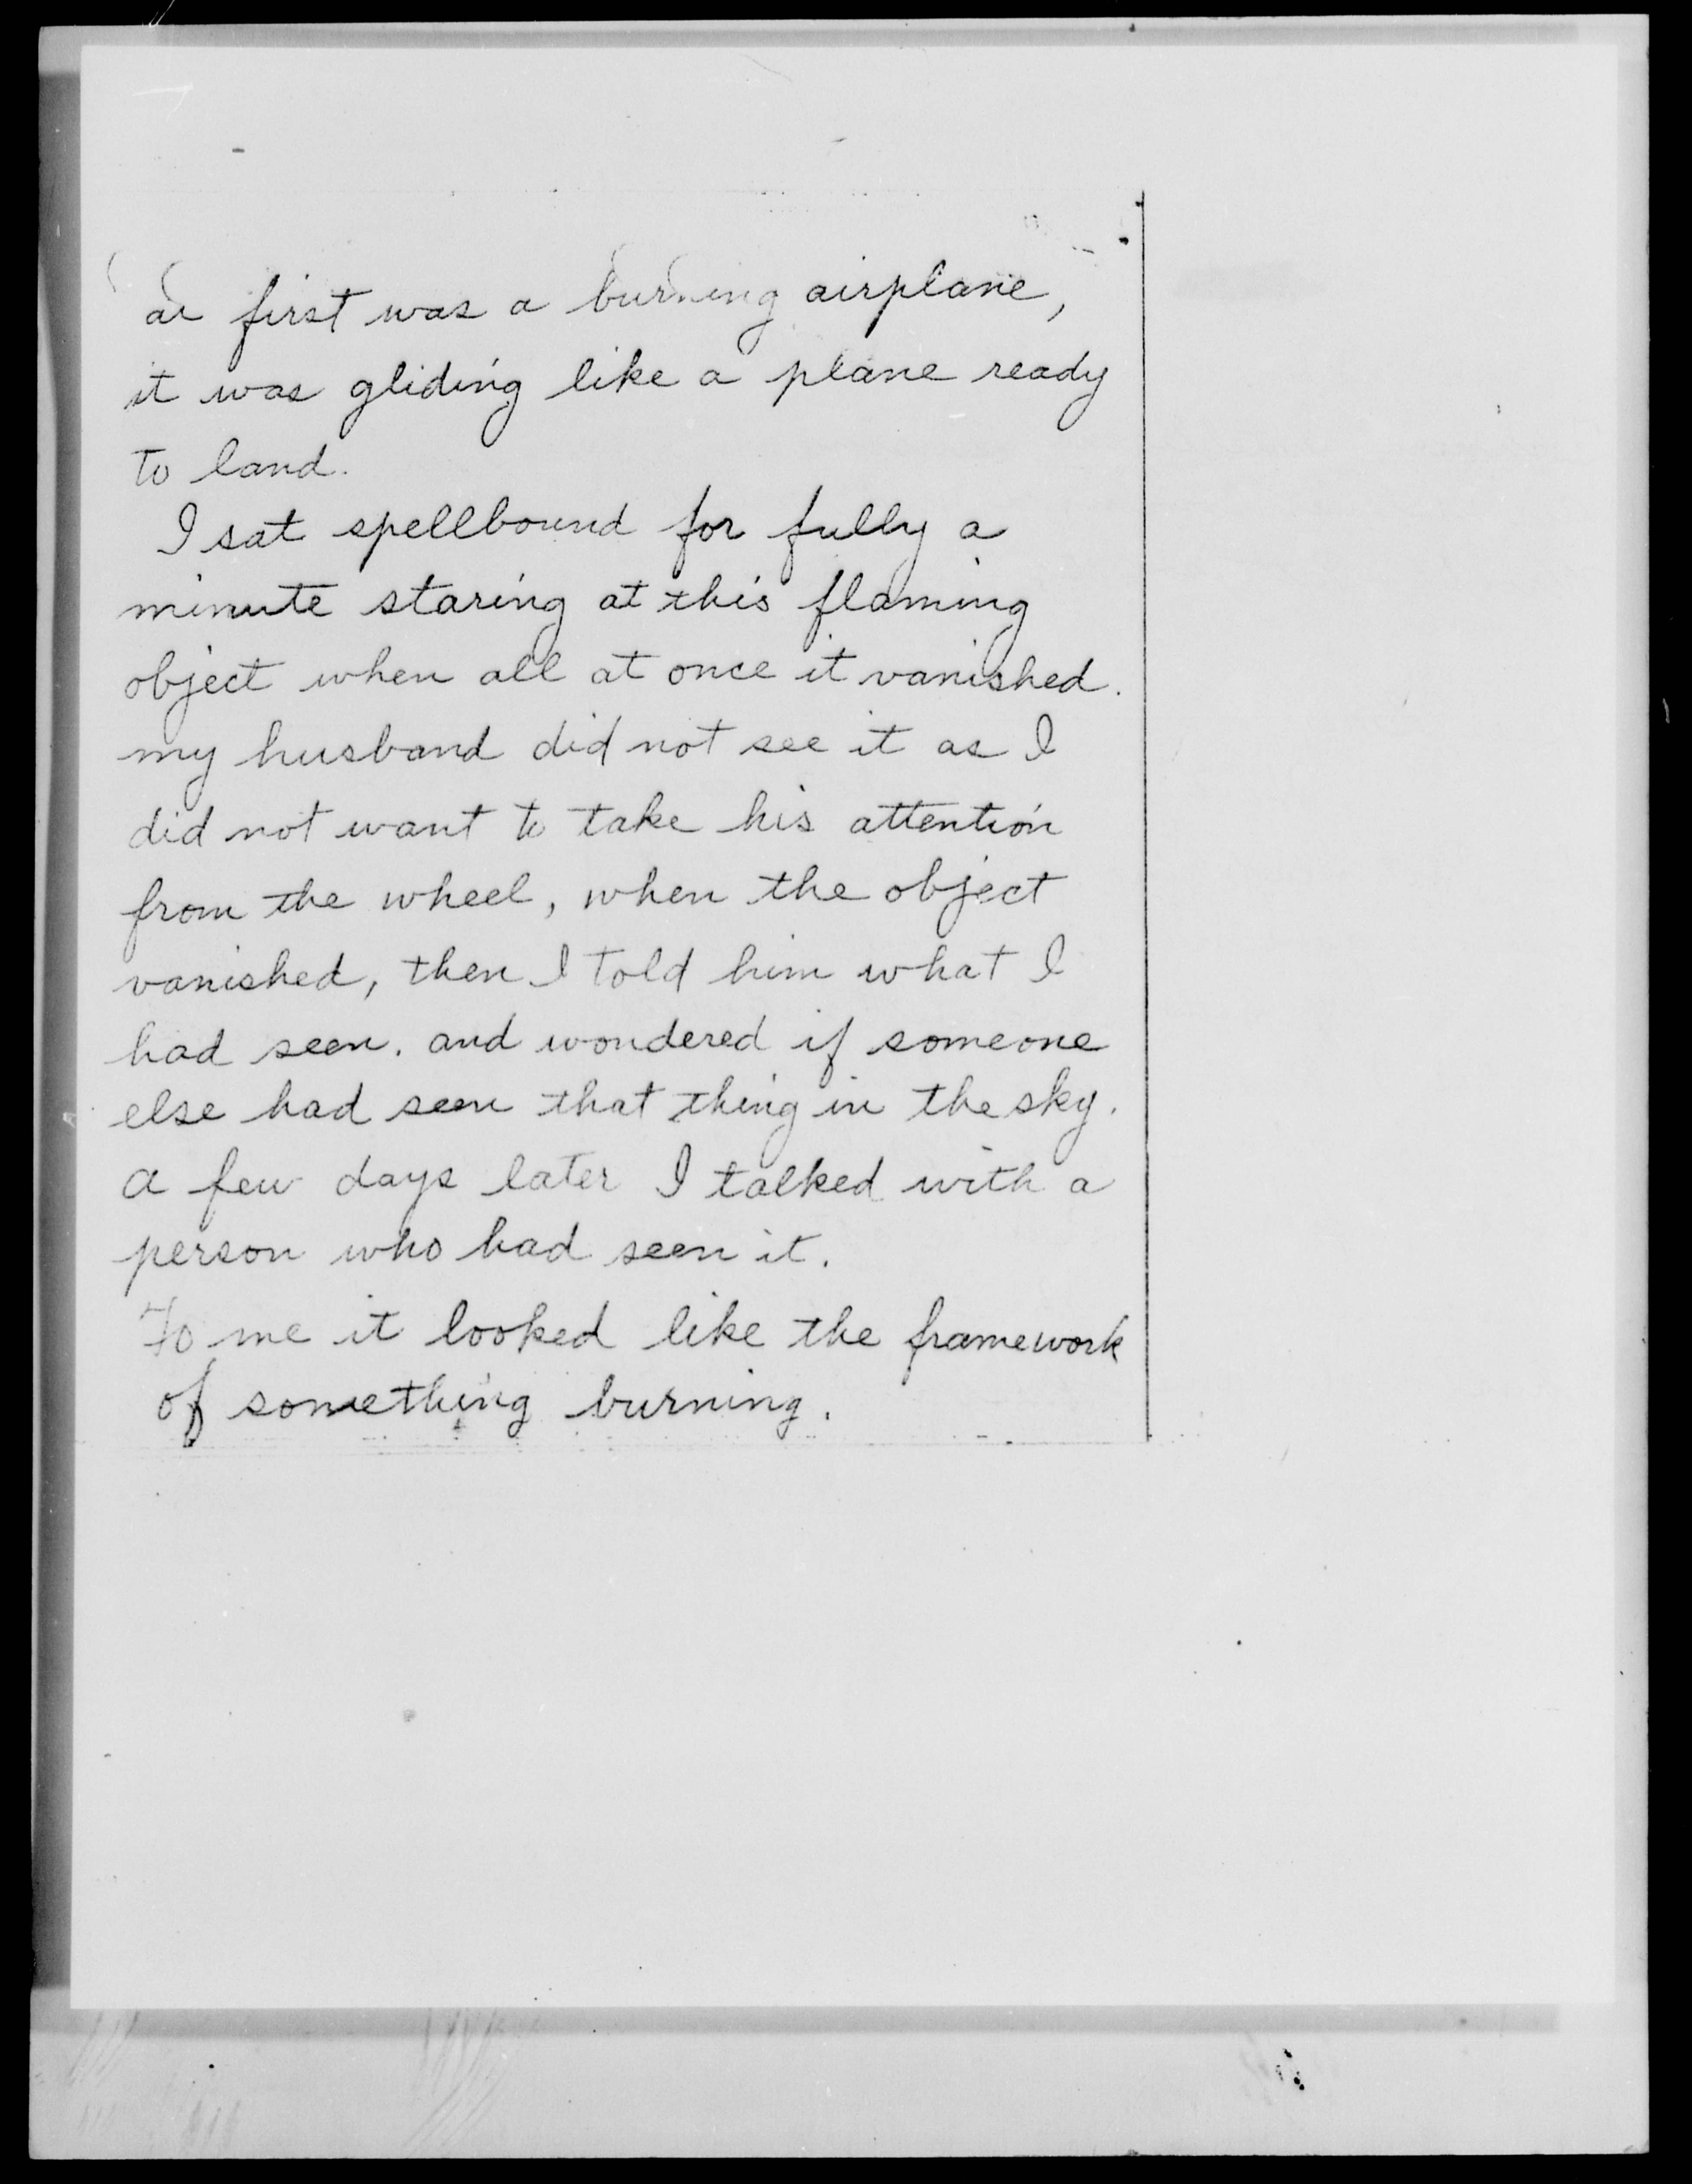 at first was a burning airplane,
it was gliding like a plane ready
to land.
I sat spellbound for fully a
minute staring at this flaming
object when all at once it vanished.
my husband did not see it as I
did not want to take his attention
from the wheel, when the object
vanished, then I told him what I
had seen. and wondered if someone
else had seen that thing in the sky.
a few days later I talked with a
person who had seen it.
To me it looked like the framework
of something burning.